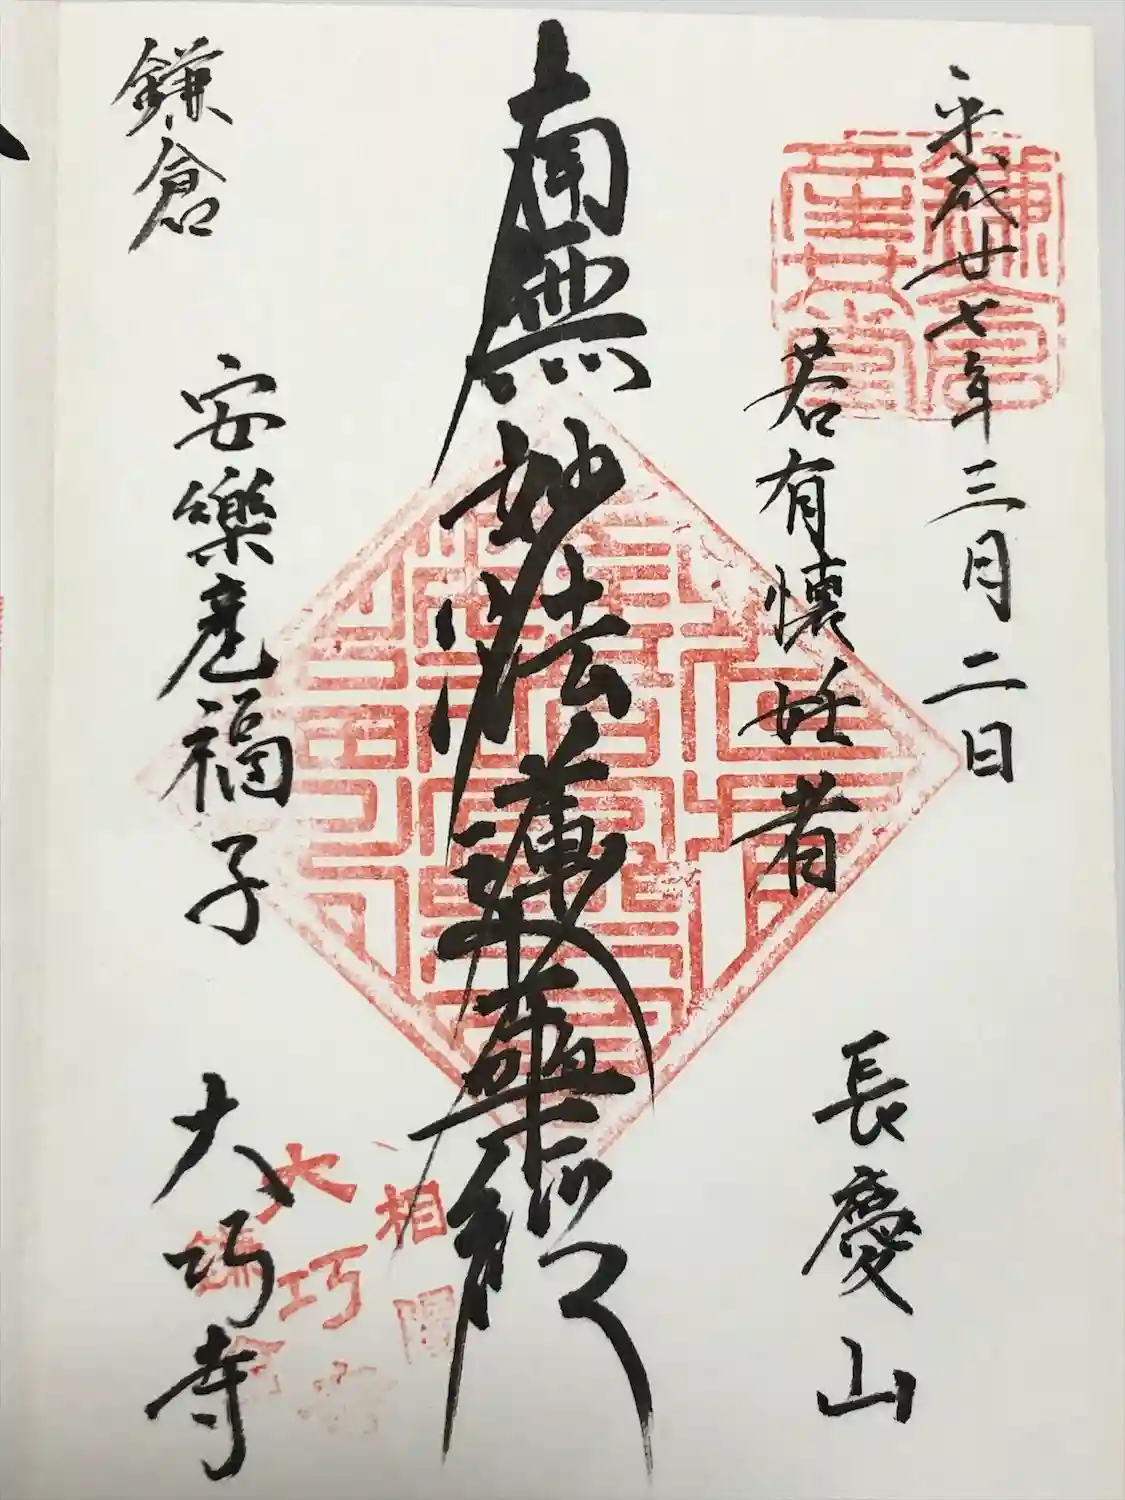 平成廿七年三月二日
若有懐妊者
長慶山
南無妙法蓮華経
鎌倉
安樂産福子
大巧寺
鎌倉
産女堂
相国
大巧寺
鎌倉